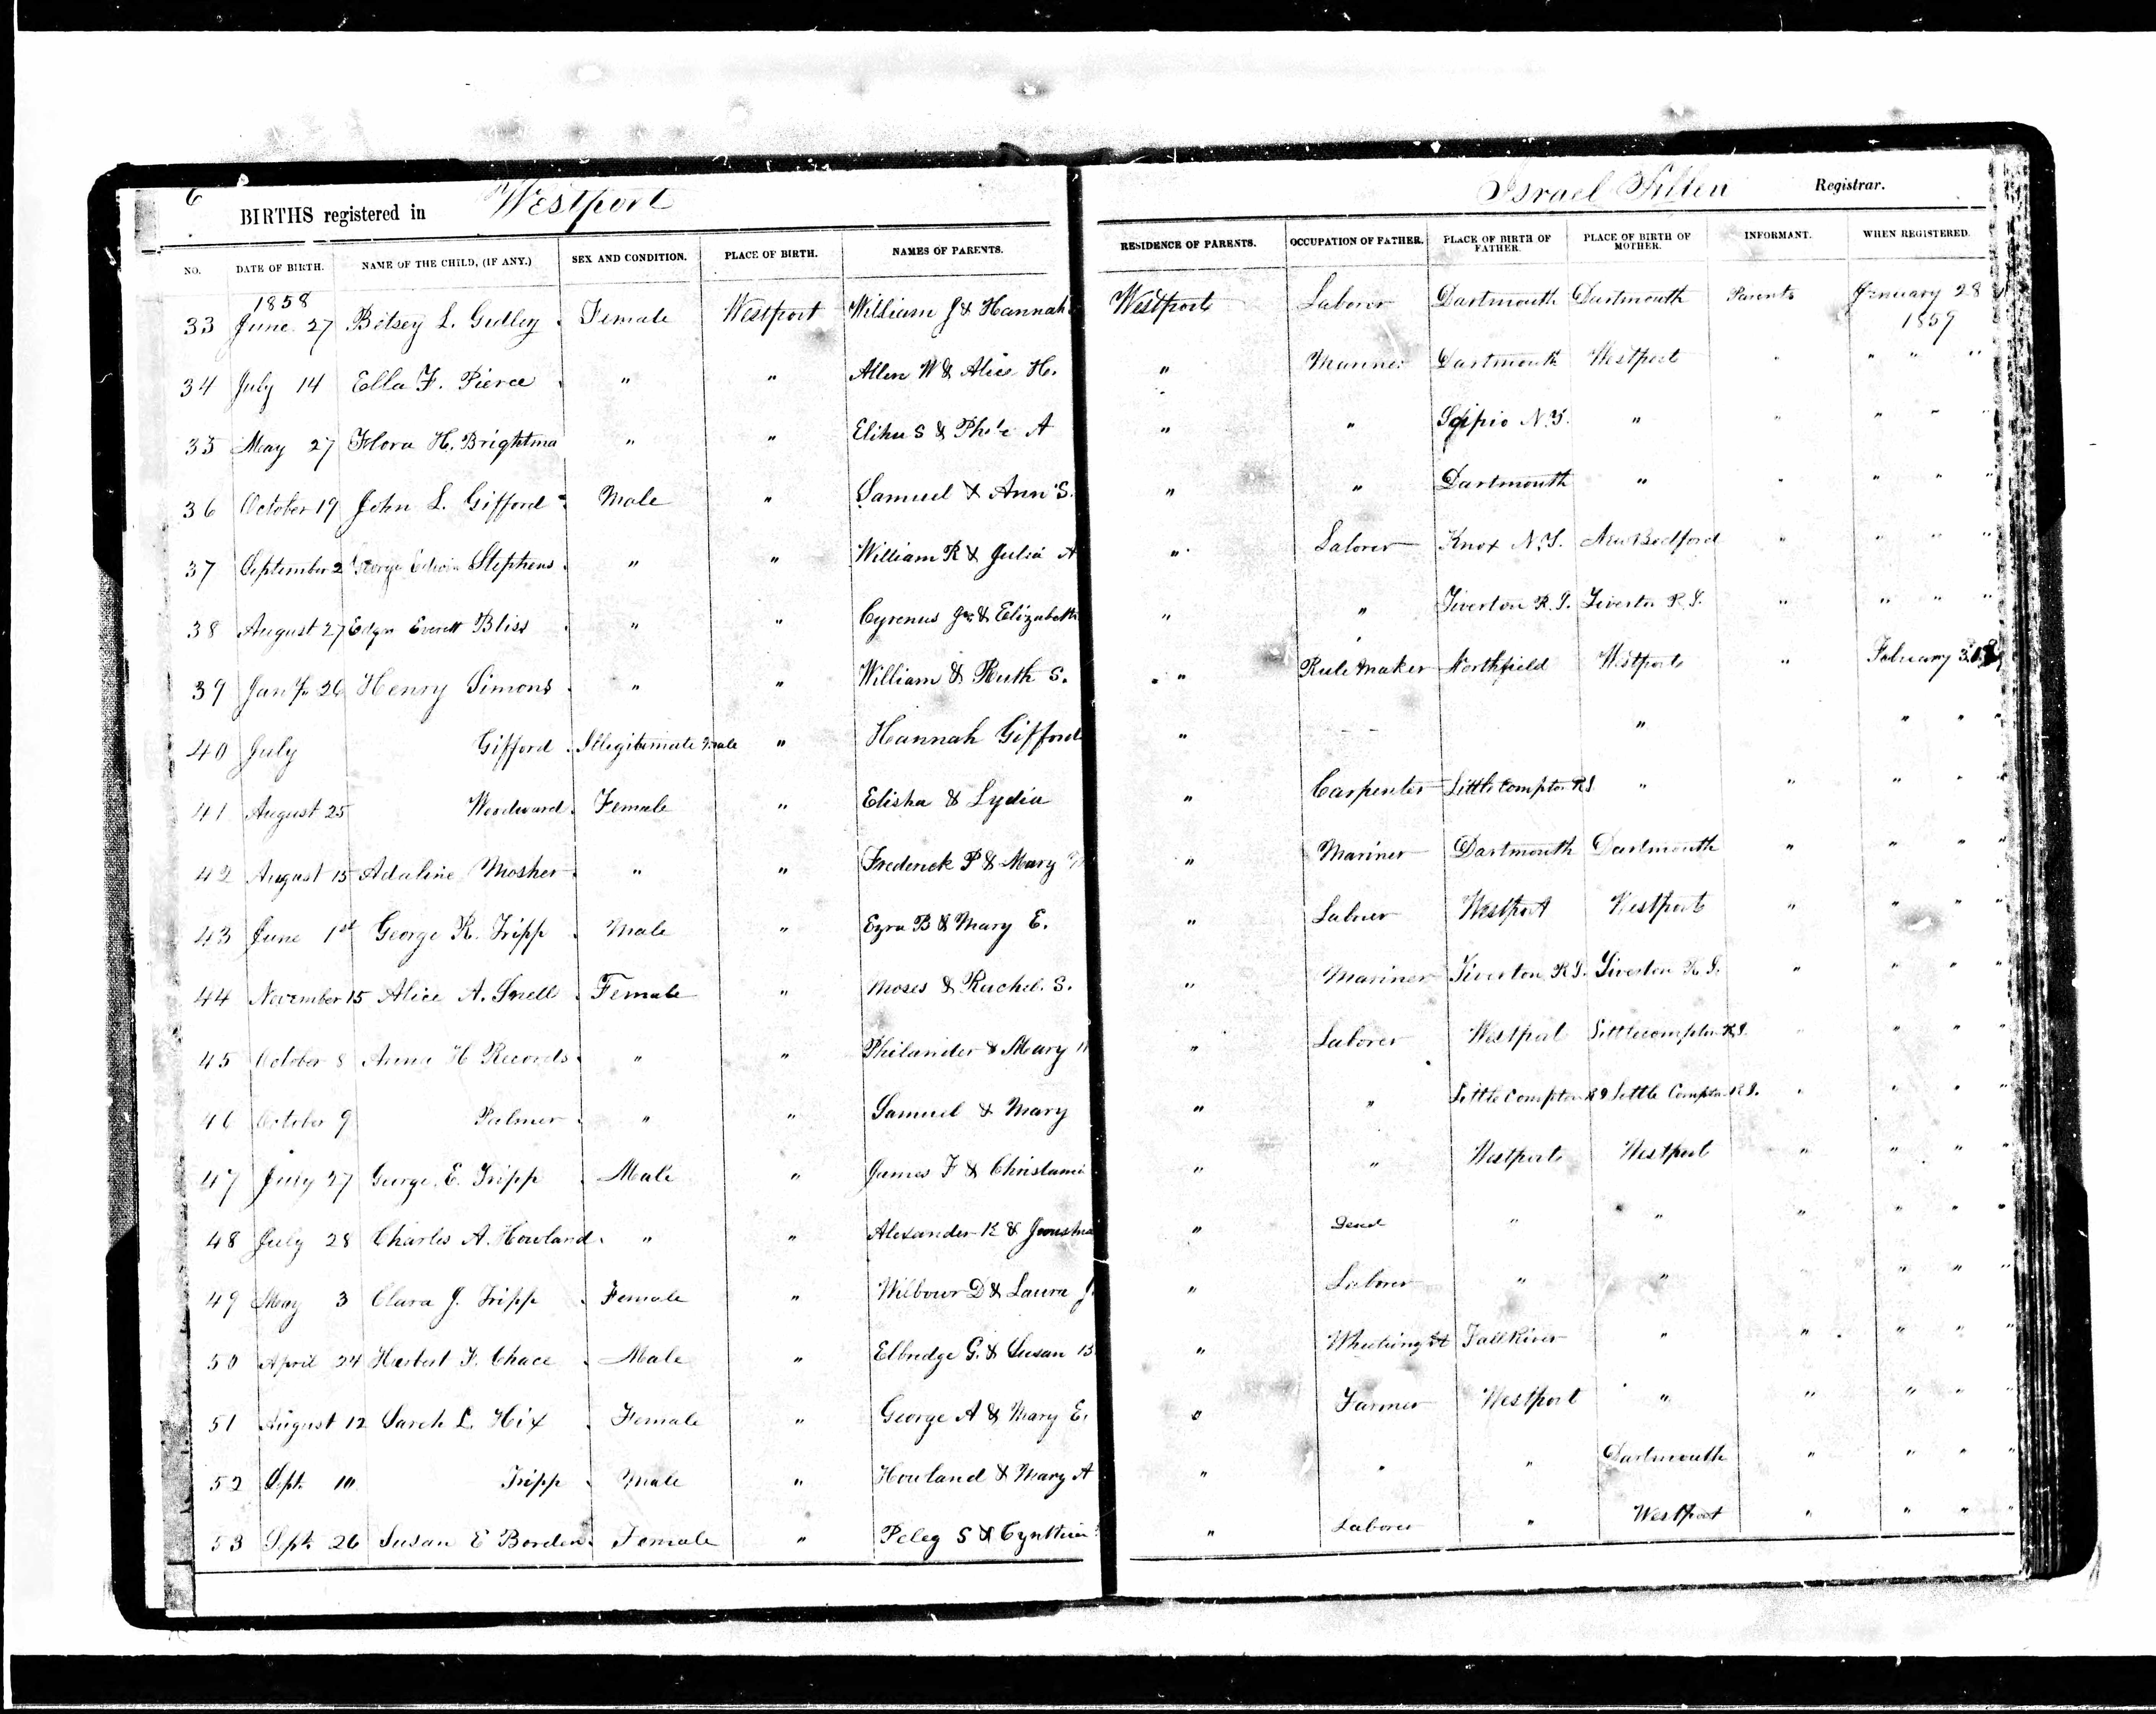 6 BIRTHS registered in Westport Israel Allen Registrar.
NO. DATE OF BIRTH. NAME OF THE CHILD, (IF ANY.) SEX AND CONDITION. PLACE OF BIRTH. NAMES OF PARENTS. RESIDENCE OF PARENTS. OCCUPATION OF FATHER. PLACE OF BIRTH OF FATHER. PLACE OF BIRTH OF MOTHER. INFORMANT. WHEN REGISTERED.
1858
33 June 27 Betsey L. Gidley Female Westport William J & Hannah Westport Laborer Dartmouth Dartmouth Parents January 28 1859
34 July 14 Ella F. Pierce " " Allen W & Alice H. " Mariner Dartmouth Westport " " " "
35 May 27 Flora H. Brightma " " Elihu S & A " " Scipio N.Y. " " " " "
36 October 19 John L. Gifford Male " Samuel & Ann S. " " Dartmouth " " " " "
37 September 2 George Edwin Stephens " " William R & Julia A " Laborer Knox N.Y. New Bedford " " " "
38 August 27 Edgar Everett Bliss " " Cyrenus Jr. & Elizabeth " " Tiverton R.I. Tiverton R.I. " " " "
39 Jan'y 26 Henry Simons " " William & Ruth S. " Rule Maker Northfield Westport " February
40 July Gifford Illegitimate Male " Hannah Gifford " " " " "
41 August 25 Woodward Female " Elisha & Lydia " Carpenter Little Compton RI. " " " " "
42 August 15 Adaline Mosher " " Frederick P & Mary " Mariner Dartmouth Dartmouth " " " "
43 June 1st George R. Tripp Male " Ezra B & Mary E. " Laborer Westport Westport " " " "
44 November 15 Alice A. Snell Female " Moses & Rachel S. " Mariner Tiverton R.I. Tiverton R.I. " " " "
45 October 8 Anna H Records " " Philander & Mary H " Laborer Westport Little compton R.I. " " " "
46 October 9 Palmer " " Samuel & Mary " " Little Compton RI Little Compton R.I. " " " "
47 July 27 George E. Tripp Male " James F & " " Westport Westport " " " "
48 July 28 Charles A. Howland " " Alexander & " Dead " " " " " "
49 May 3 Clara J. Tripp Female " Wilbour D & Laura J. " Laborer " " " " "
50 April 24 Herbert F. Chace Male " Elbridge G. & Susan B. " Fall River " " " " "
51 August 12 Sarah L. Hix Female " George A & Mary E. " Farmer Westport " " " " "
52 Sept. 10 Tripp Male " Howland & Mary A " " " Dartmouth " " " "
53 Sept. 26 Susan E Borden Female " Peleg S & Cynthia " Laborer " Westport " " " "